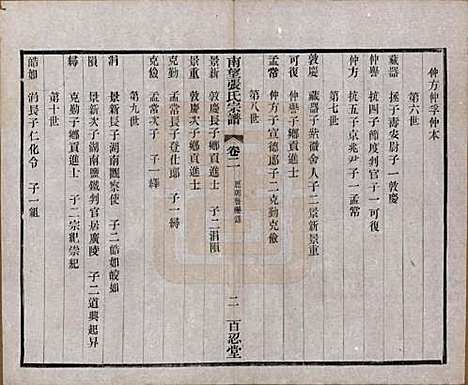 仲方仲孚仲本
第六世
藏器　拯子壽安尉子一敦慶
仲譽　抗四子節度判官子一可復
仲方　五子京兆尹子一孟常
第七世
敦慶　藏器子紫薇舍人子二景新景重
可復　仲譽子鄉貢進士
孟常　仲方子宣德郎子二克勤克儉
第八世
南望張氏宗譜　卷二　二　百忍堂
景新　敦慶長子鄉貢進士　子二涓隕
景重　敦慶次子鄉貢進士
克勤　孟常長子登仕郎　子一縛
克儉　孟常次子　子一繹
第九世
涓　景新長子湖南觀察使　子二皓如皎如
隕　景新次子湖南鹽鐵判官居廣陵　子二道興起昇
縛　克勤子鄉貢進士　子二宗紀崇紀
第十世
皓如　涓長子仁化令　子一組